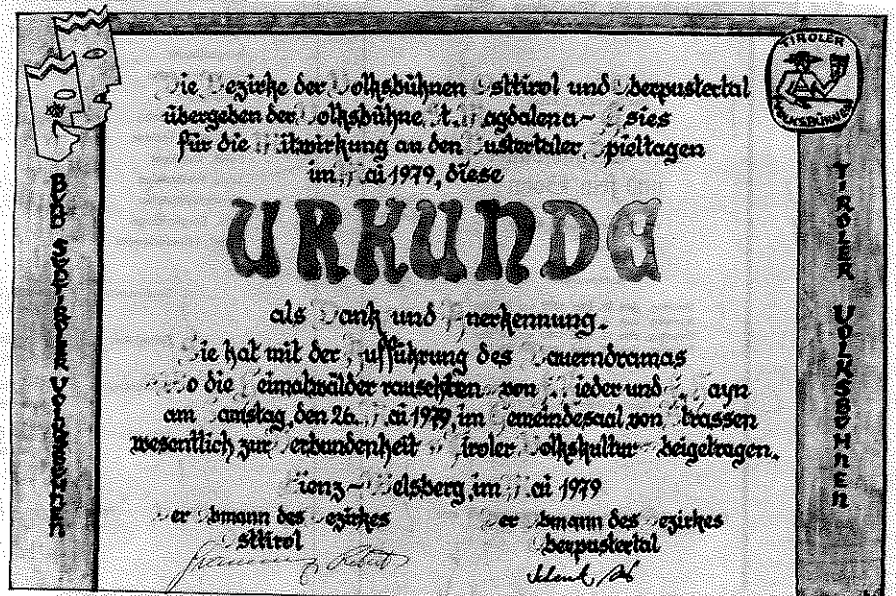 TIROLER VOLKSBÜHNEN
BUND SÜDTIROLER VOLKSBÜHNEN
TIROLER VOLKSBÜHNEN
Die Bezirke der Volksbühnen Osttirol und Oberpustertal
übergeben der Volksbühne St. Magdalena ~ Gsies
für die Mitwirkung an den Pustertaler Spieltagen
im Mai 1979, diese
URKUNDE
als Dank und Anerkennung.
Sie hat mit der Aufführung des Bauerndramas
Wo die Heimatwälder rauschten von Rieder und
am Samstag, den 26. Mai 1979, im Gemeindesaal von Strassen
wesentlich zur Verbundenheit Tiroler Volkskultur beigetragen.
Lienz ~ Welsberg, im Mai 1979
Der Obmann des Bezirkes
Osttirol
Der Obmann des Bezirkes
Oberpustertal